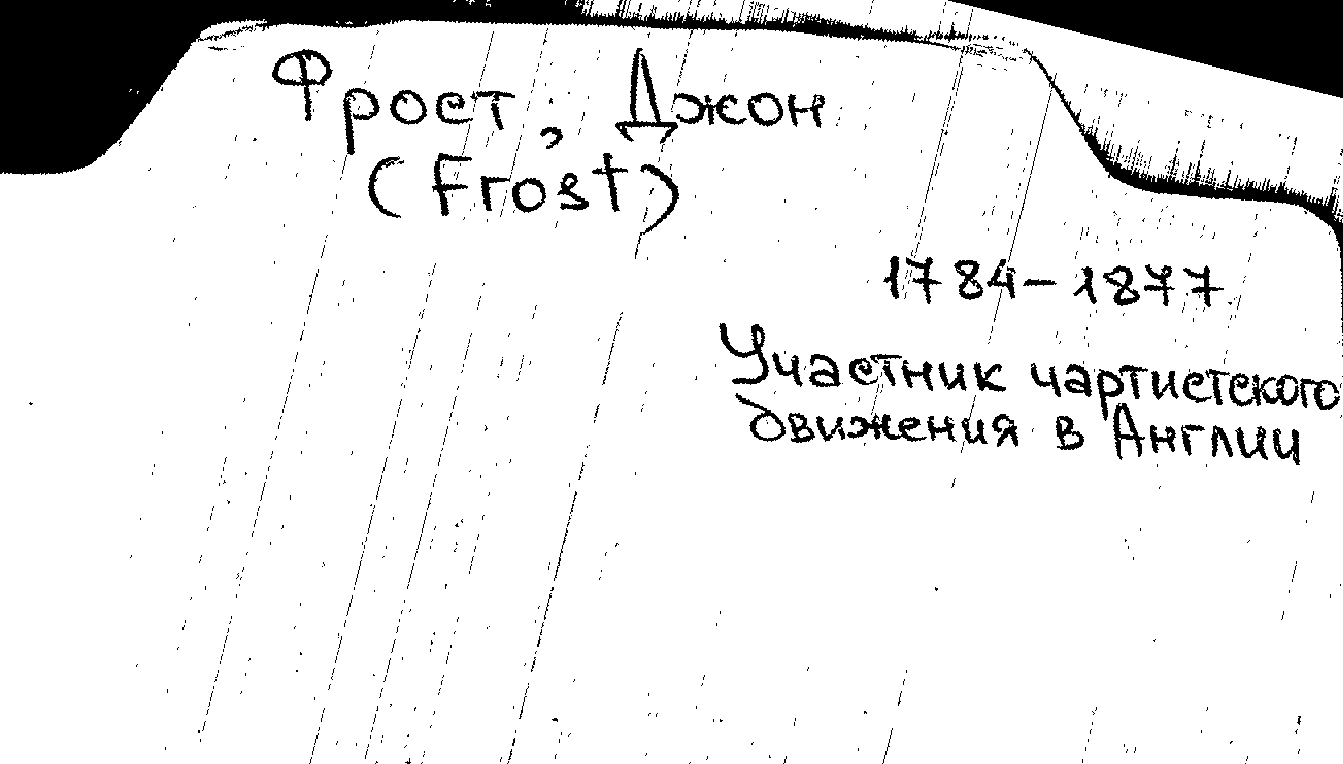 Фрост, Джон
(Frost)
1784-1877
Участник чартистского
движения в Англии